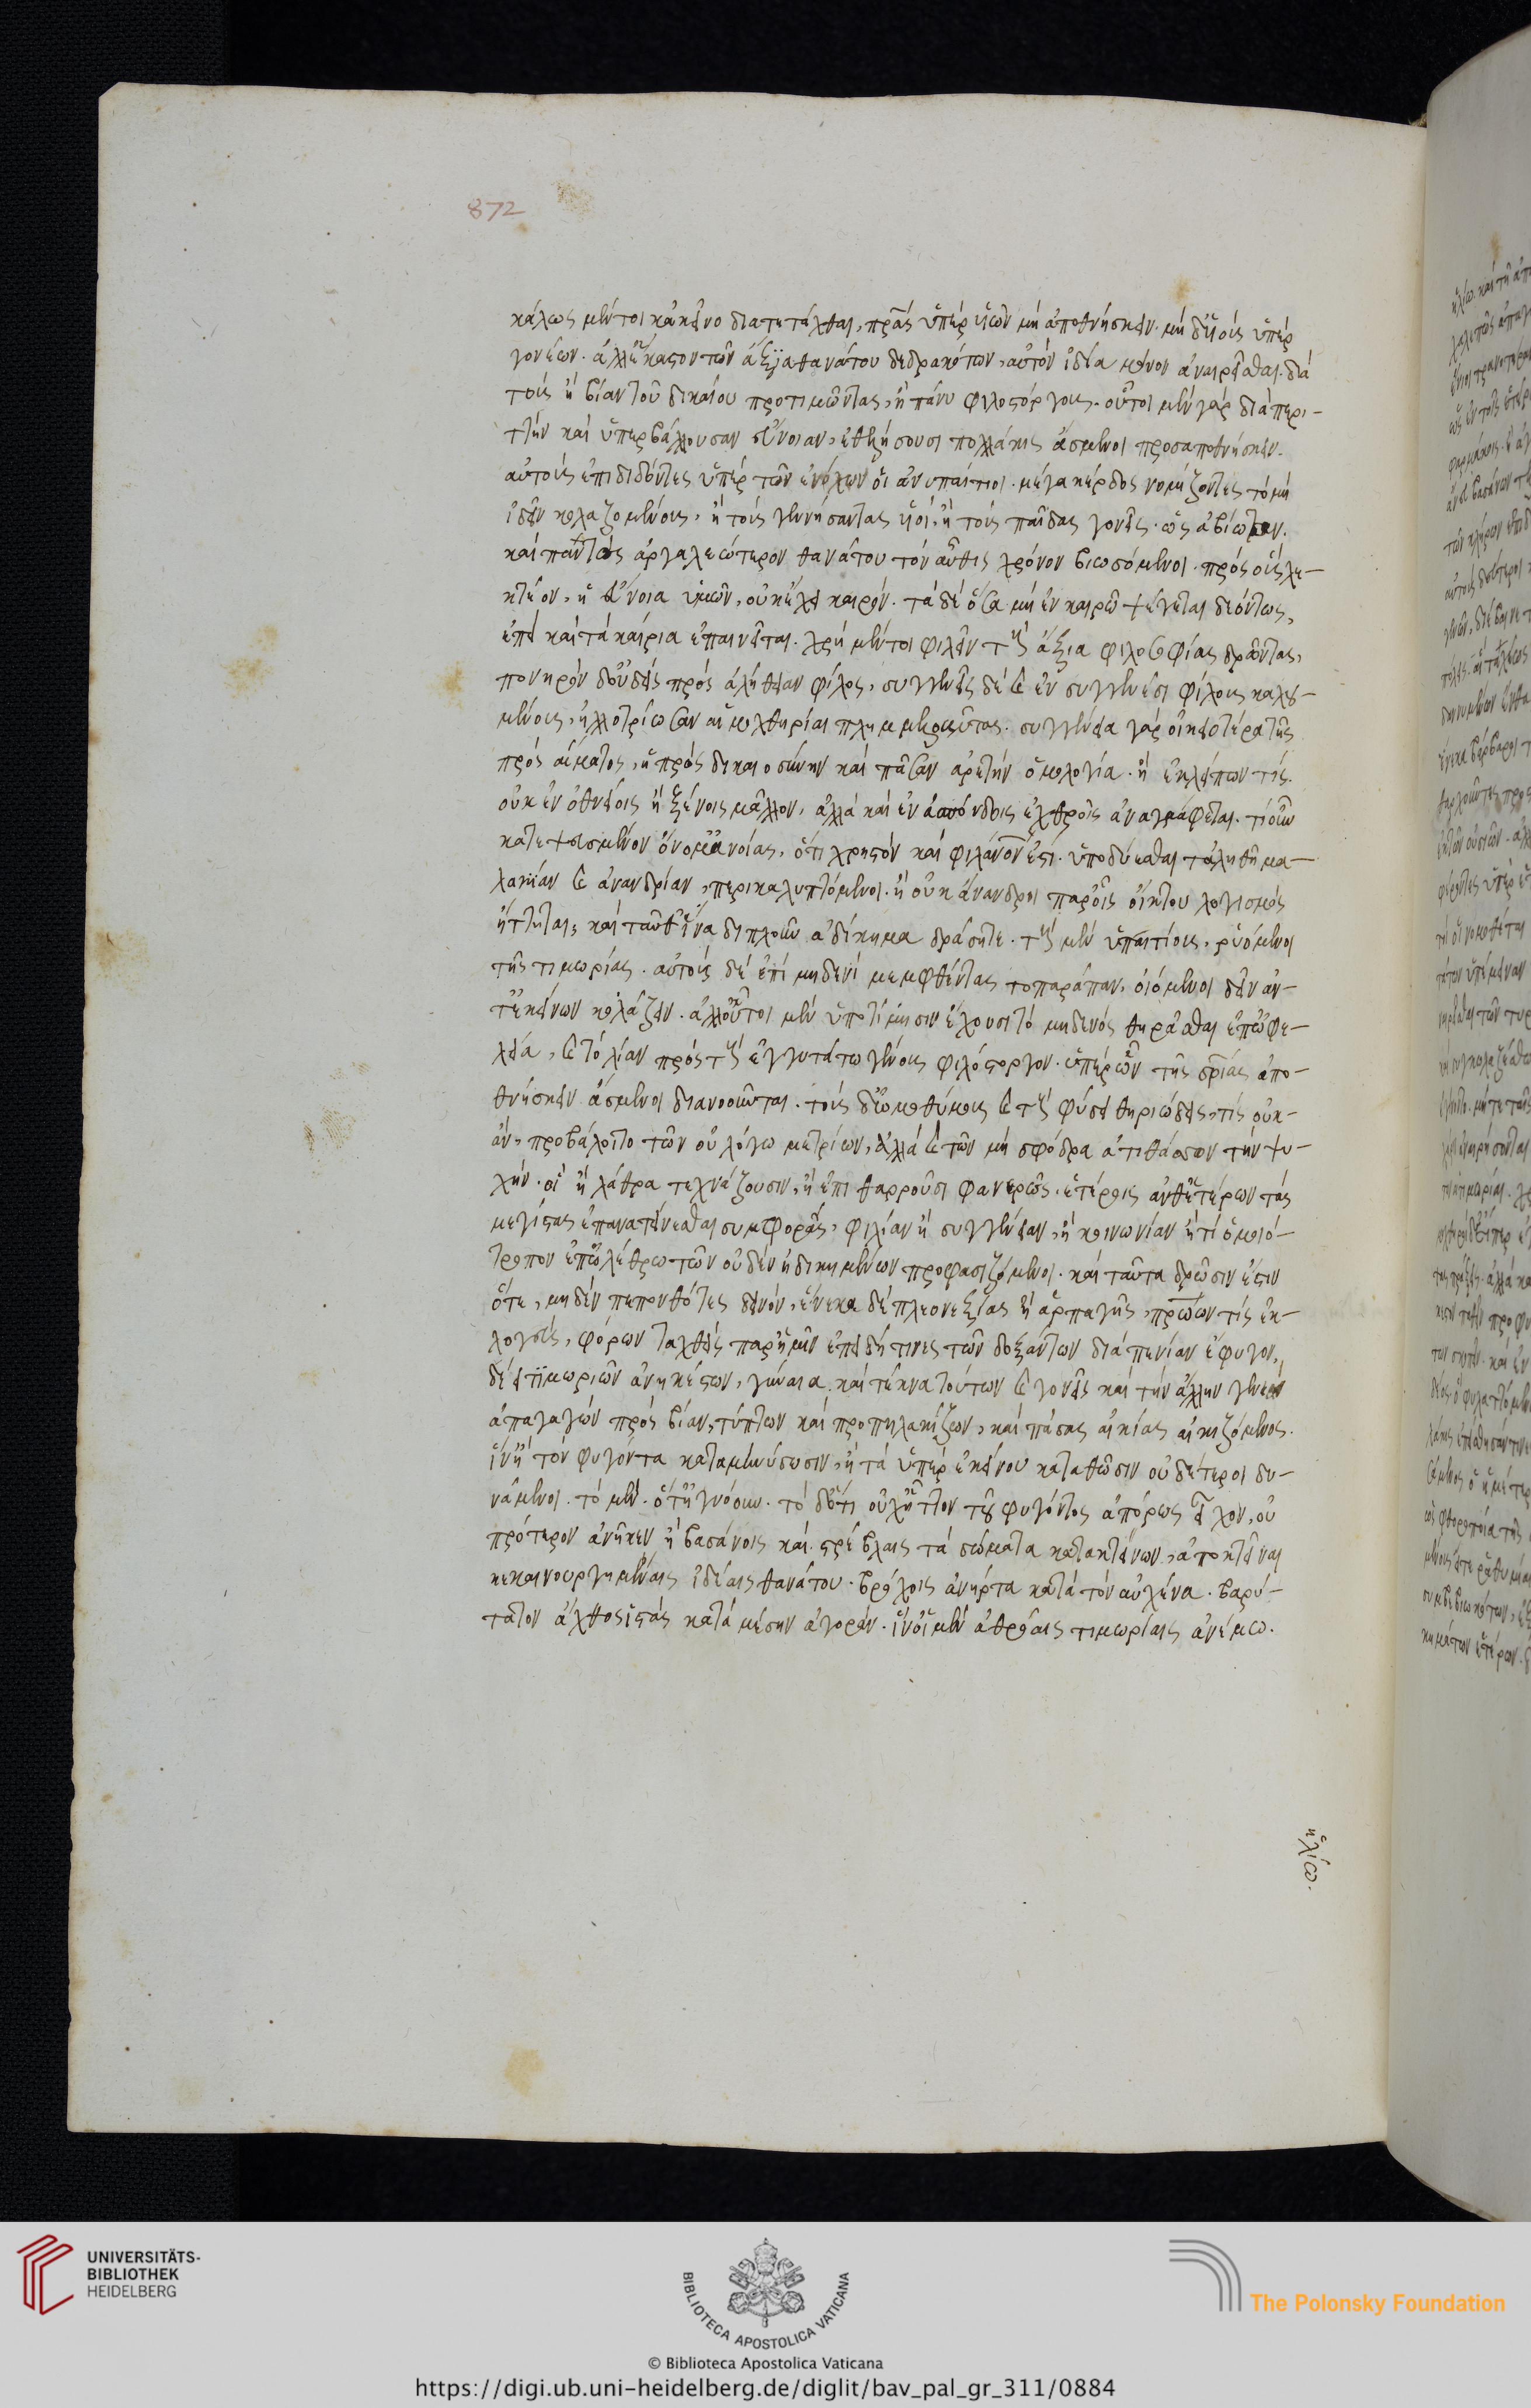 872
κάλως μέντοι κἀκεῖνο διατετάχθαι, πρ̅ας ὑπέρ υἱῶν μή ἀποθνήσκειν. μή δ' υἱούς ὑπέρ
γονέων. ἀλλ' ἕκαστον τῶν ἄξϊα θανάτου δεδρακότων, αὐτόν ἰδία μόνον ἀναιρεῖσθαι. διά
τούς ἢ βίαν τοῦ δικαίου προτιμῶντας, ἢ πάνυ φιλοστόργους. οὗτοι μέν γάρ διά περι-
τήν καί ὑπερβάλλουσαν εὔνοιαν, ἐθελήσουσι πολλάκις ἄσμενοι προσαποθνήσκειν.
αὐτούς ἐπιδιδόντες ὑπέρ τῶν ἐνόχων οἱ ἀνυπαίτιοι. μέγα κέρδος νομίζοντες τό μή
ἰδεῖν κολαζομένους, ἢ τούς γεννήσαντας υἱοί, ἢ τούς παῖδας γονεῖς. ὡς ἀβίωτον.
καί παντός ἀργαλεώτερον θανάτου τόν αὖθις χρόνον βιωσόμενοι. πρός οὓς λε-
κτέον, ἡ εὔνοια ὑμῶν, οὐκ ἔχει καιρόν. τά δέ ὅσα μή ἐν καιρῶ ψέγεται δεόντως,
ἐπεί καί τά καίρια ἐπαινεῖται. χρή μέντοι φιλεῖν τούς ἄξια φιλοσοφίας δρῶντας,
πονηρόν δ' οὐδείς πρός ἀλήθειαν φίλος, συγγενεῖς δέ καί ἐν συγγενέσι φίλους καλου-
μένους, ἠλλοτρίωσαν αἱ μοχθηρίαι πλημμελοῦντας. συγγένεια γάρ οἰκειοτέρα τῆς
πρός αἵματος, ἡ πρός δικαιοσύνην καί πᾶσαν ἀρετήν ὁμολογία. ἣ ἐκλείπων τίς.
οὐκ ἐν ὀθνείοις ἢ ξένοις μᾶλλον, ἀλλά καί ἐν ἀσπόνδοις ἐχθροῖς ἀναγράφεται. τί οὖν
κατεψευσμένον ὄνομ' εὐνοίας, ὅτι χρηστόν καί φιλάν̅ο̅ν ἐστι. ὑποδύεσθαι τ' ἀληθῆ μα-
λακίαν καί ἀνανδρίαν, περικαλυπτόμενοι. ἢ οὐκ ἄνανδροι παρ' οἷς οἴκτου λογισμός
ἥττηται; καί ταῦθ' ἵνα διπλοῦν ἀδίκημα δράσητε. τούς μέν ὑπαιτίους, ῥυόμενοι
τῆς τιμωρίας. αὐτούς δέ ἐπί μηδενί μεμφθέντας τοπαράπαν, οἰόμενοι δεῖν ἀν-
τ' ἐκείνων κολάζειν. ἀλλ' οὗτοι μέν ὑποτίμησιν ἔχουσι τό μηδενός θηρᾶσθαι ἐπ' ὠφε-
λεία, καί τό λίαν πρός τούς ἐγγυτάτω γένους φιλόστοργον. ὑπέρ ὧν τῆς σρ̅ίας ἀπο-
θνήσκειν ἄσμενοι διανοοῦνται. τούς δ' ὠμοθύμους καί τάς φύσει θηριώδεις, τίς οὐκ-
ἄν, προβάλοιτο τῶν οὐ λόγω μετρίων, ἀλλά καί τῶν μή σφόδρα ἀτιθάσσων τήν ψυ-
χήν. οἳ ἢ λάθρα τεχνάζουσιν, ἢ ἐπιθαρροῦσι φανερῶς. ἑτέροις ἀνθ' ἑτέρων τάς
μεγίστας ἐπανατείνεσθαι συμφοράς, φιλίαν ἢ συγγένειαν, ἢ κοινωνίαν ἤ τι ὁμοιό-
τροπον ἐπ' ὀλέθρω τῶν οὐδέν ἠδικημένων προφασιζόμενοι. καί ταῦτα δρῶσιν ἔστιν
ὅτε, μηδέν πεπονθότες δεινόν, ἕνεκα δέ πλεονεξίας ἢ ἁρπαγῆς, πρώων τίς ἐκ-
λογεύς, φόρων ταχθείς παρ' ἡμῖν ἐπειδή τινες τῶν δοξάντων διά πενίαν ἔφυγον,
δέει τϊμωριῶν ἀνηκέστων, γύναια καί τέκνα τούτων καί γονεῖς καί τήν ἄλλην γενεάν
ἀπαγαγών πρός βίαν, τύπτων καί προπηλακίζων, καί πάσας αἰκίας αἰκιζόμενος.
ἵν' ἢ τόν φυγόντα καταμηνύσωσιν, ἢ τά ὑπέρ ἐκείνου καταθῶσιν οὐδέτεροι δυ-
νάμενοι. τό μέν. ὅτ' ἠγνόουν. τό δ' ὅτι οὐχ ἧττον τοῦ φυγόντος ἀπόρως εἶχον, οὐ
πρότερον ἀνῆκεν ἢ βασάνοις καί στρέβλαις τά σώματα κατακτείνων, ἀποκτεῖναι
κεκαινουργημέναις ἰδέαις θανάτου. βρόχοις ἀνήρτα κατά τόν αὐχένα. βαρύ-
τατον ἄχθος ἱστάς κατά μέσην ἀγοράν. ἵν' οἱ μέν ἀθρόαις τιμωρίαις ἀνέμω.
ἡλίω.
UNIVERSITÄTS-
BIBLIOTHEK
HEIDELBERG
BIBLIOTECA APOSTOLICA VATICANA
The Polonsky Foundation
© Biblioteca Apostolica Vaticana
https://digi.ub.uni-heidelberg.de/diglit/bav_pal_gr_311/0884